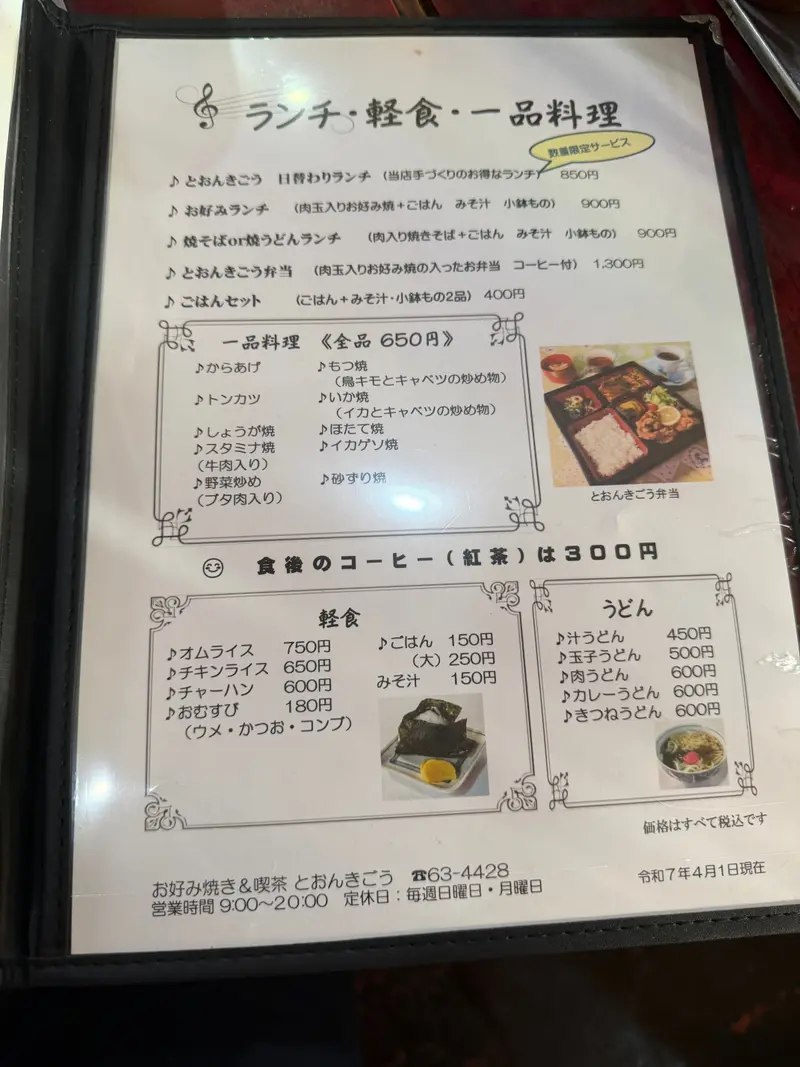 ランチ・軽食・一品料理
数量限定サービス
♪ とおんきごう 日替わりランチ (当店手づくりのお得なランチ) 850円
♪ お好みランチ (肉玉入りお好み焼+ごはん みそ汁 小鉢もの) 900円
♪ 焼そばor焼うどんランチ (肉入り焼きそば+ごはん みそ汁 小鉢もの) 900円
♪ とおんきごう弁当 (肉玉入りお好み焼の入ったお弁当 コーヒー付) 1,300円
♪ ごはんセット (ごはん+みそ汁・小鉢もの2品) 400円
一品料理 《全品 650円》
♪からあげ
♪トンカツ
♪しょうが焼
♪スタミナ焼
(牛肉入り)
♪野菜炒め
(ブタ肉入り)
♪もつ焼
(鳥キモとキャベツの炒め物)
♪いか焼
(イカとキャベツの炒め物)
♪ほたて焼
♪イカゲソ焼
♪砂ずり焼
とおんきごう弁当
食後のコーヒー(紅茶)は300円
軽食
♪オムライス 750円
♪チキンライス 650円
♪チャーハン 600円
♪おむすび 180円
(ウメ・かつお・コンブ)
♪ごはん 150円
(大) 250円
みそ汁 150円
うどん
♪汁うどん 450円
♪玉子うどん 500円
♪肉うどん 600円
♪カレーうどん 600円
♪きつねうどん 600円
価格はすべて税込です
お好み焼き&喫茶 とおんきごう ☎63-4428
営業時間 9:00〜20:00 定休日:毎週日曜日・月曜日
令和7年4月1日現在